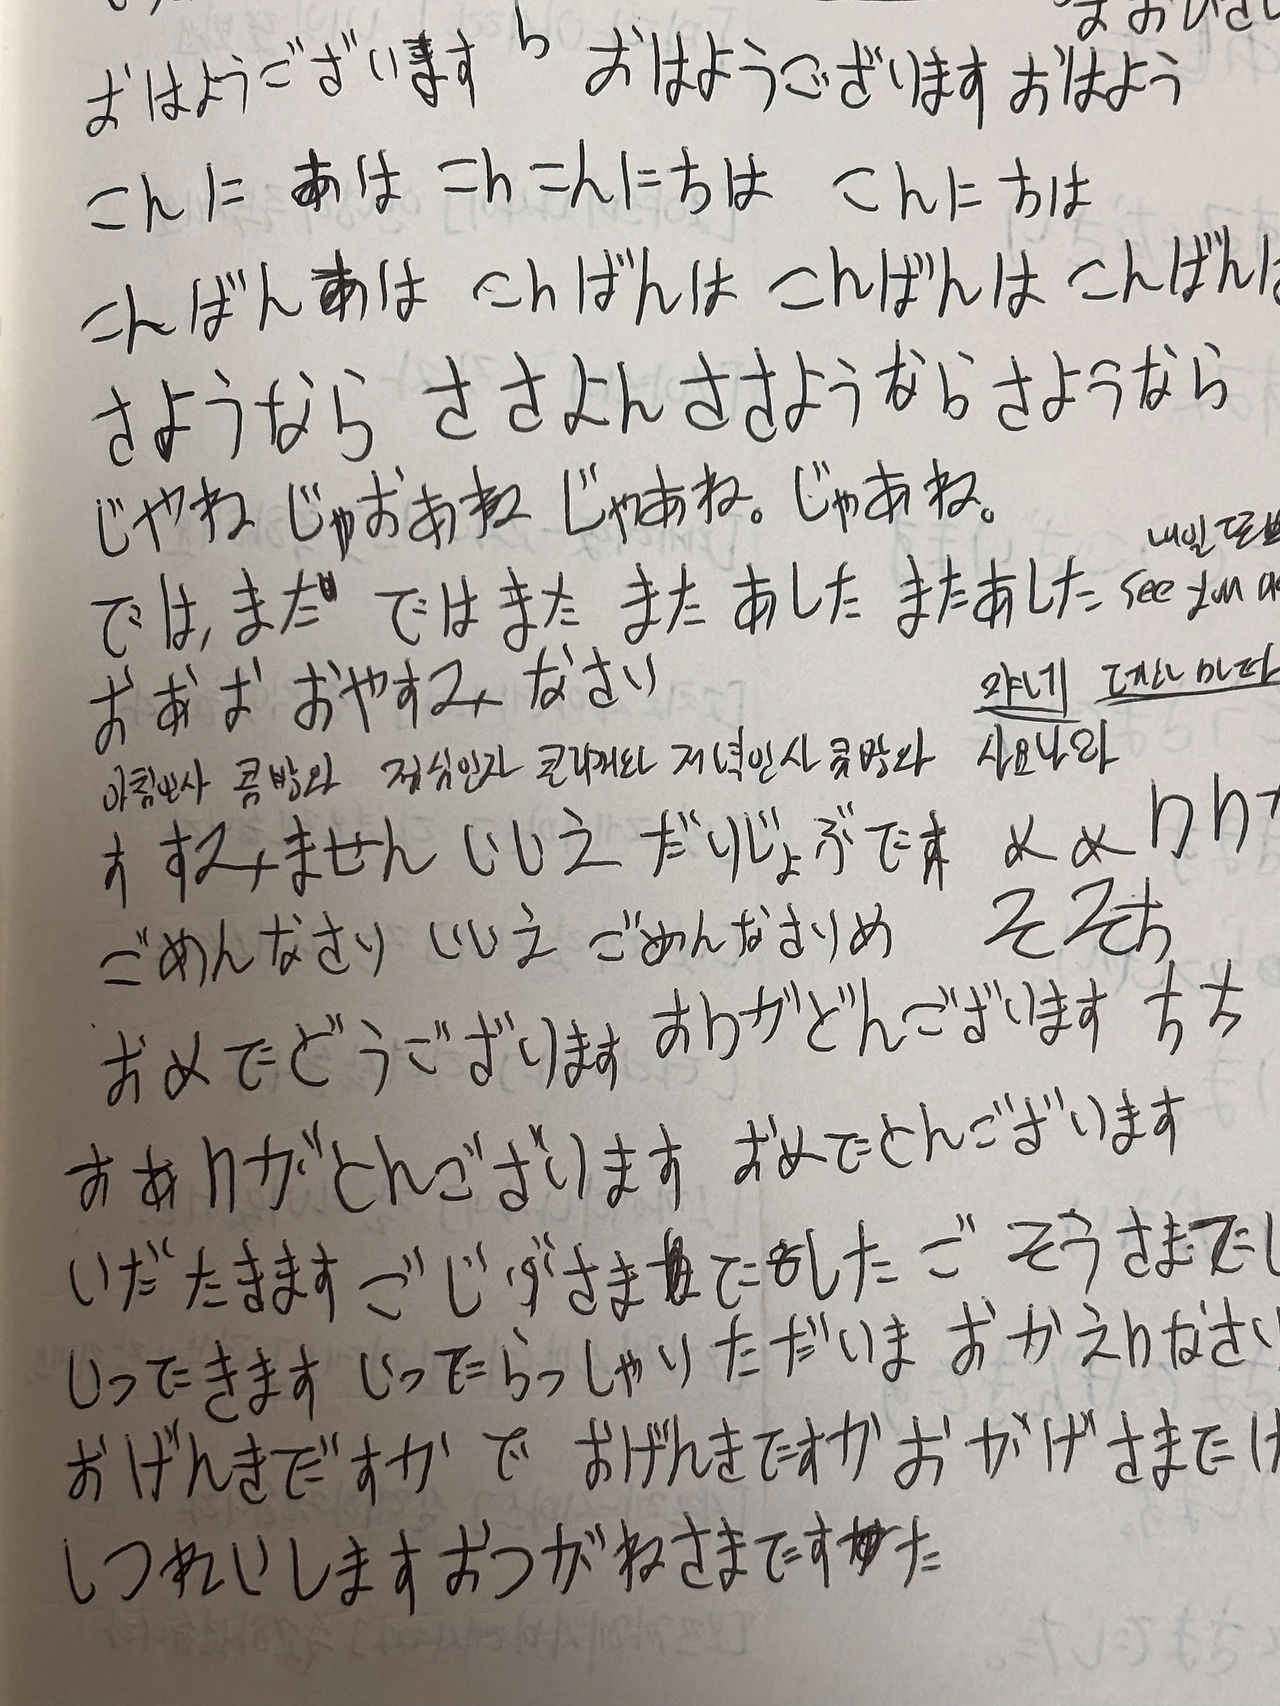 おはようございます ら おはようございます おはよう
こんに あは こん こんにちは こんにちは
こんばん あは こんばんは こんばんは こんばんは
さようなら ささよん ささようなら さようなら
じやね じゃおあね じゃあね。じゃあね。
내일 또
では,まだ ではまた また あした またあした see you
おあお おやすみ なさい
야네 데와 마따
아침인사 콤방와 점심인사 곤니찌와 저녁인사 콤방와 사요나라
す すみません いいえ だいじょぶです め め りり
ごめんなさい いいえ ごめんなさいめ そ そそち
おめでどうございます ありがどんございます ち ち
おありがとんございます おめでとんございます
いだたきます ごじずさま でした ご そうさまでし
いってきます いってらっしゃい ただいま おかえりなさい
おげんきでずか で おげんきですか おがげさまでは
しつれいします おつがねさまです た